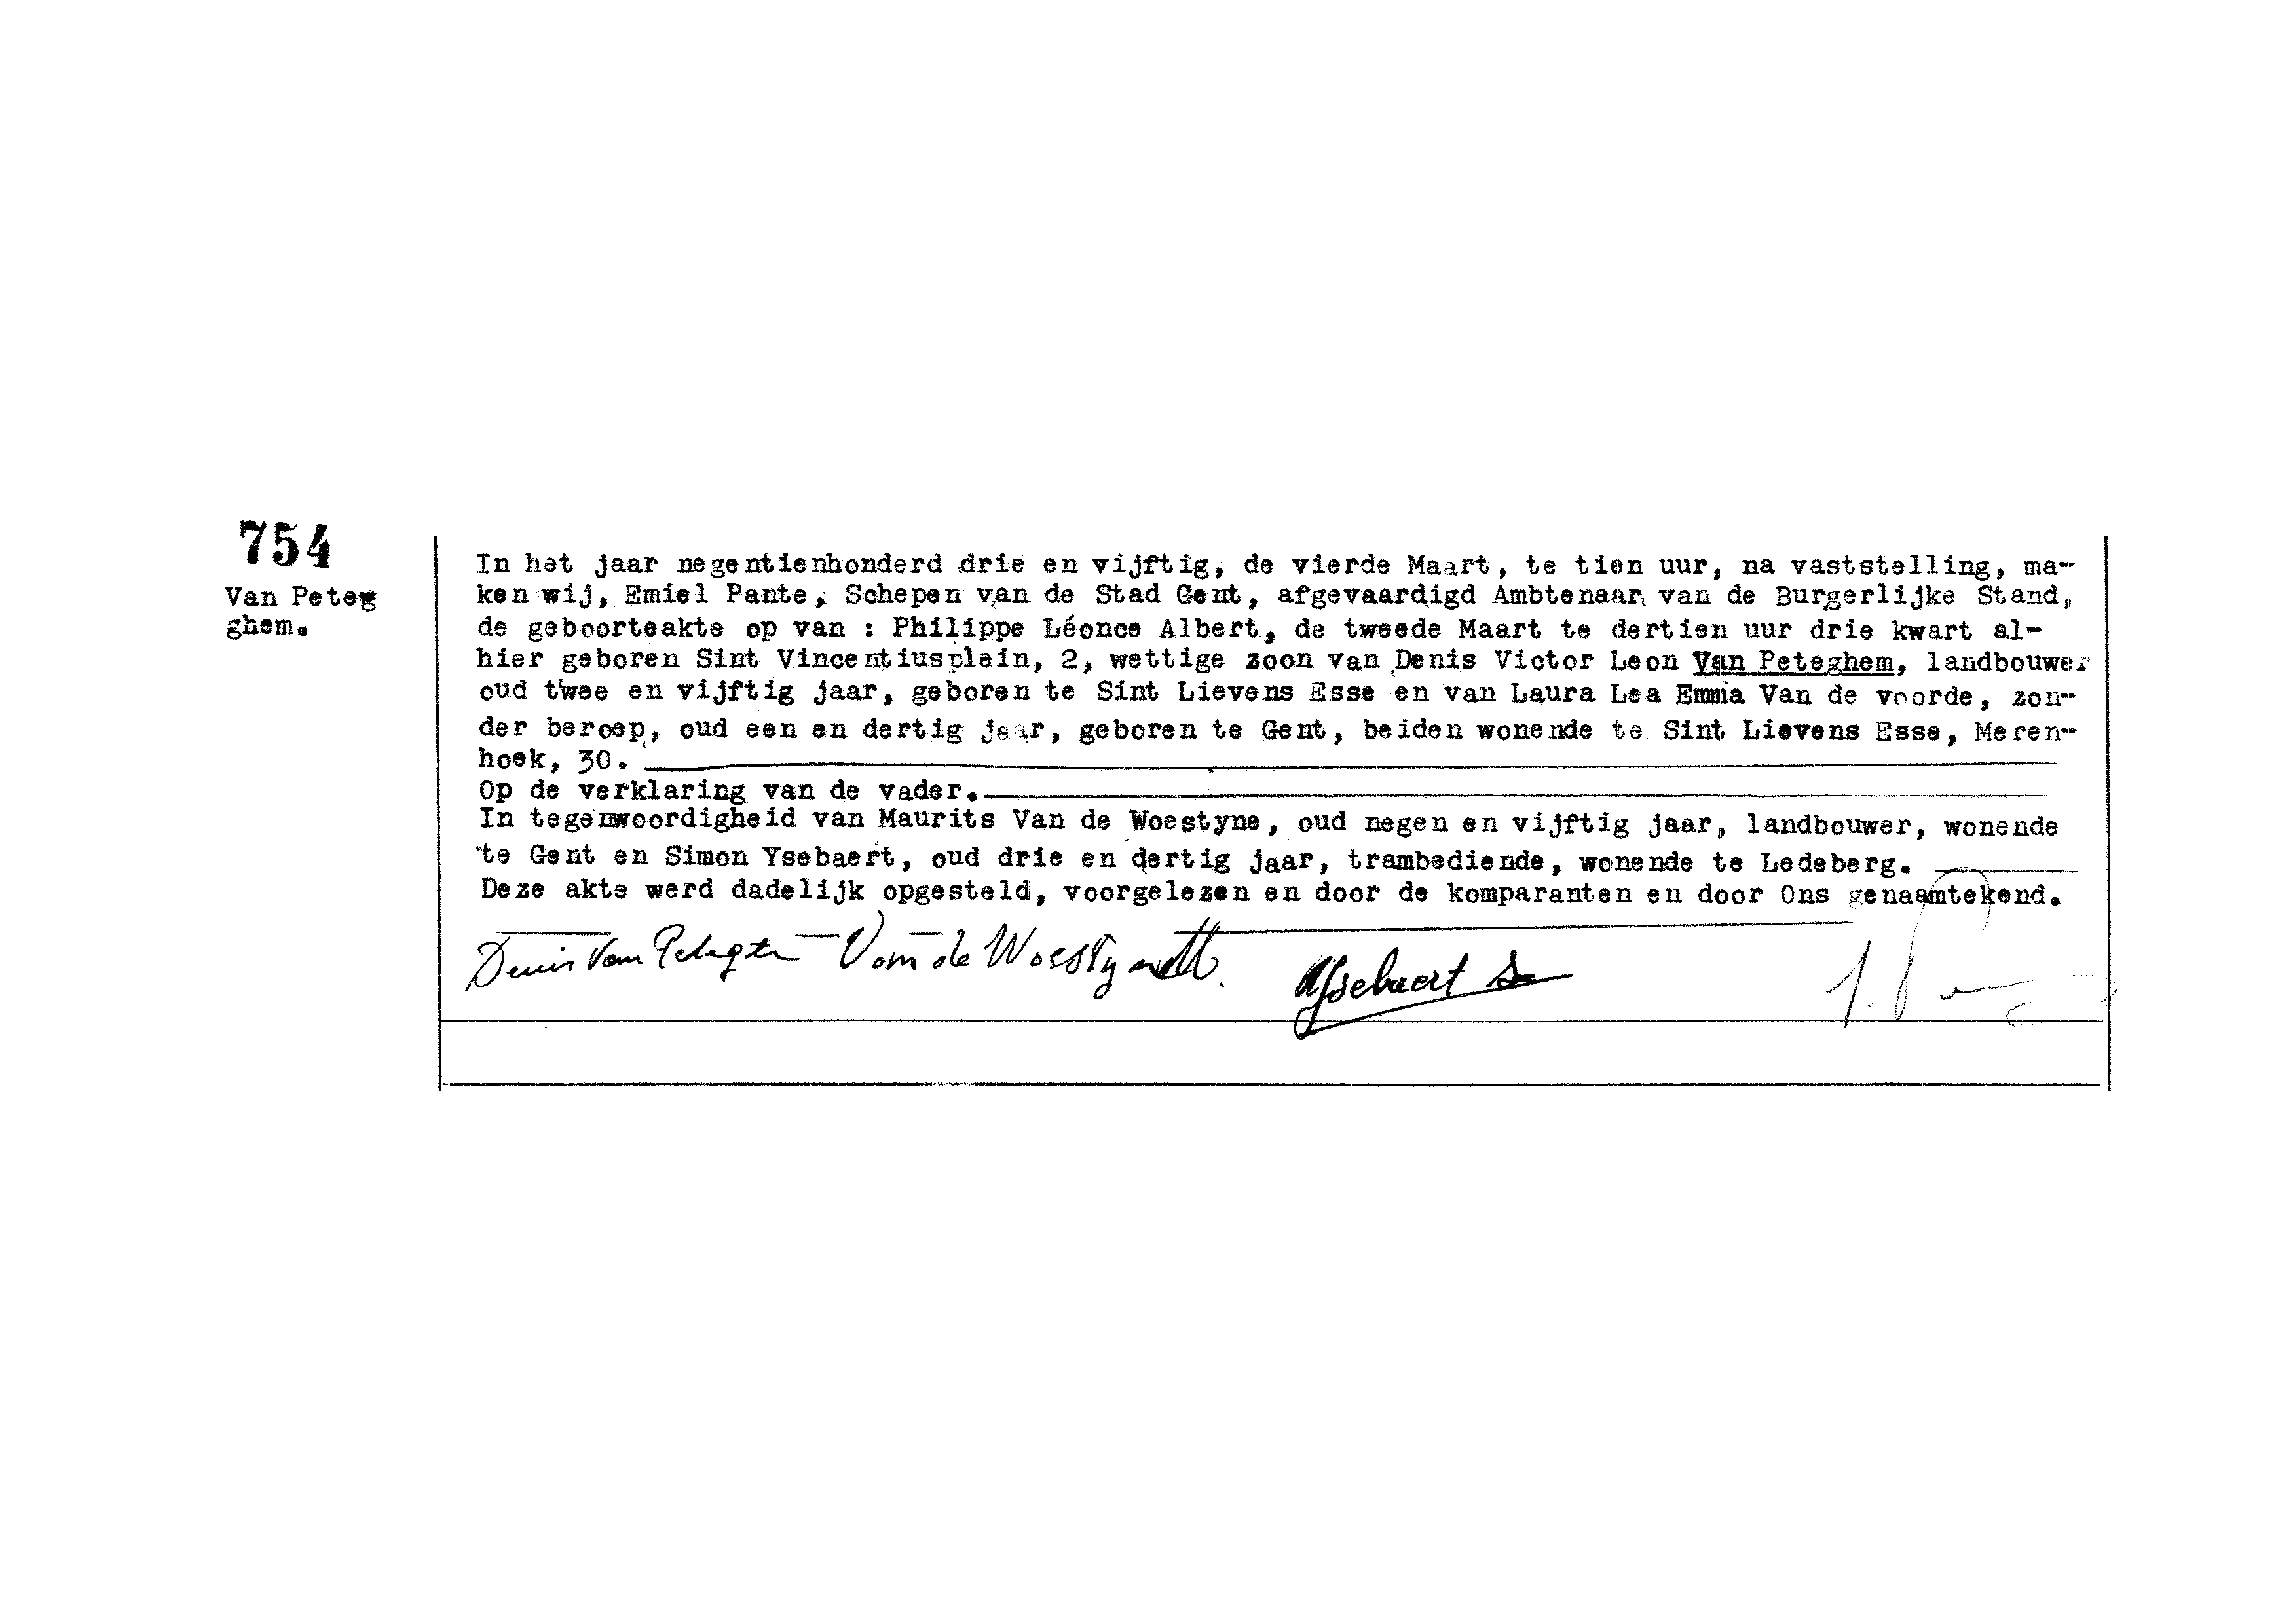 754
Van Peteg
ghem.
In het jaar negentienhonderd drie en vijftig, de vierde Maart, te tien uur, na vaststelling, ma-
ken wij, Emiel Pante, Schepen van de Stad Gent, afgevaardigd Ambtenaar van de Burgerlijke Stand,
de geboorteakte op van : Philippe Léonce Albert, de tweede Maart te dertien uur drie kwart al-
hier geboren Sint Vincentiusplein, 2, wettige zoon van Denis Victor Leon Van Peteghem, landbouwer
oud twee en vijftig jaar, geboren te Sint Lievens Esse en van Laura Lea Emma Van de voorde, zon-
der beroep, oud een en dertig jaar, geboren te Gent, beiden wonende te Sint Lievens Esse, Meren-
hoek, 30.
Op de verklaring van de vader.
In tegenwoordigheid van Maurits Van de Woestyne, oud negen en vijftig jaar, landbouwer, wonende
te Gent en Simon Ysebaert, oud drie en dertig jaar, trambediende, wonende te Ledeberg.
Deze akte werd dadelijk opgesteld, voorgelezen en door de komparanten en door Ons genaamtekend.
Denis Van Van de Ysebaert